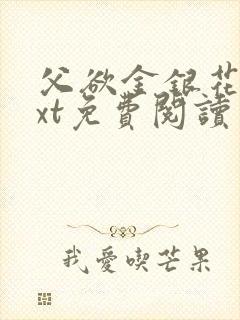 父欲金銀花
xt免費閱讀
我愛喫芒果